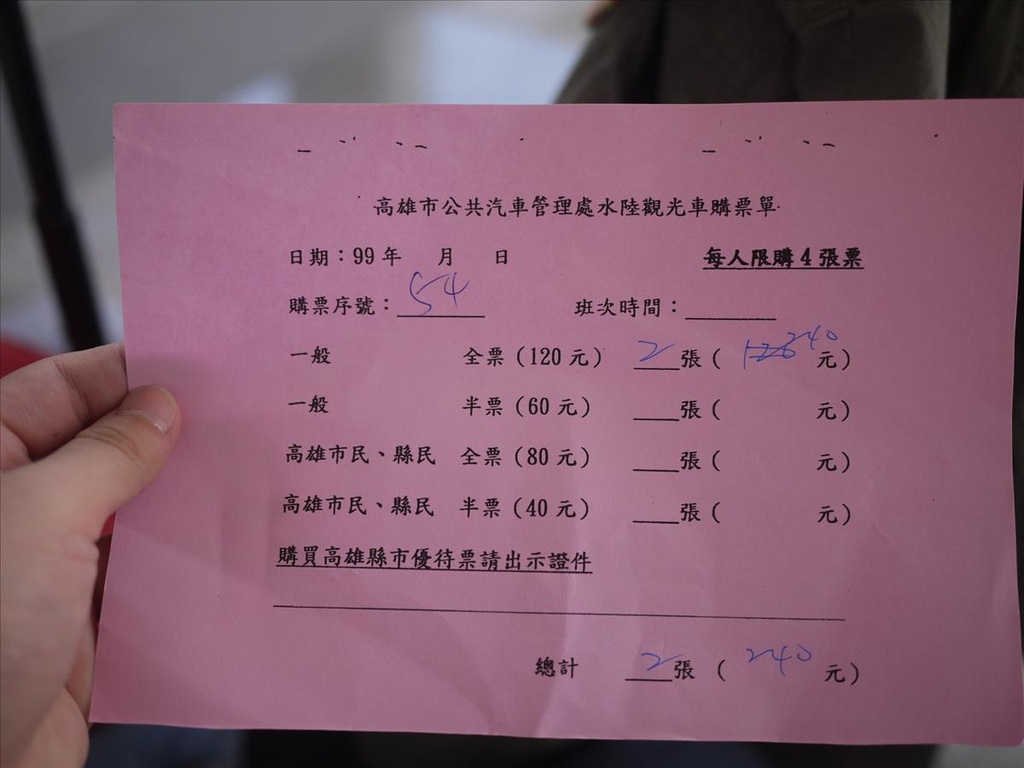 高雄市公共汽車管理處水陸觀光車購票單
日期：99年 月 日 每人限購4張票
購票序號：54 班次時間：
一般 全票(120元) 2張( 240元)
一般 半票(60元) 張( 元)
高雄市民、縣民 全票(80元) 張( 元)
高雄市民、縣民 半票(40元) 張( 元)
購買高雄縣市優待票請出示證件
總計 2張 ( 240元)